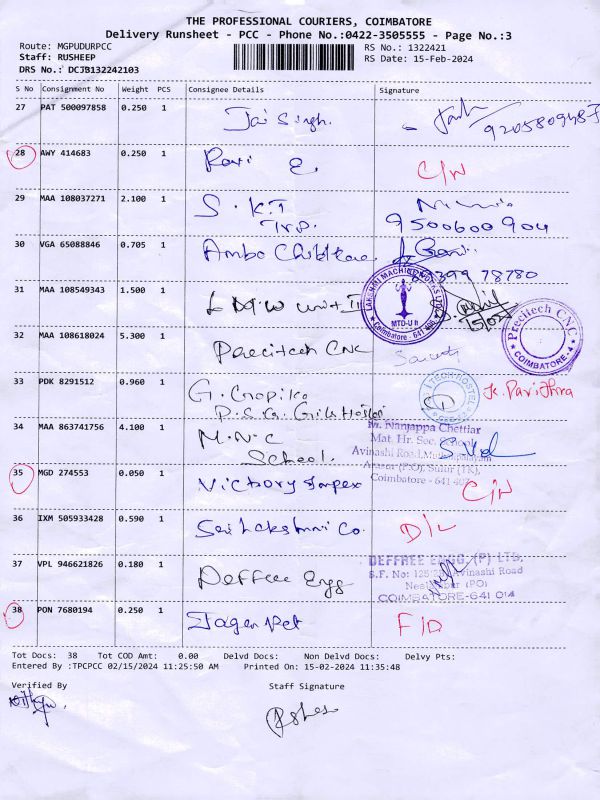 THE PROFESSIONAL COURIERS, COIMBATORE
Delivery Runsheet - PCC - Phone No.:0422-3505555 - Page No.:3
Route: MGPUDURPCC RS No.: 1322421
Staff: RUSHEEP RS Date: 15-Feb-2024
DRS No.: DCJB132242103
S No Consignment No Weight PCS Consignee Details Signature
27 PAT 500097858 0.250 1 Jai Singh.
9205809487
28 AWY 414683 0.250 1 Ravi E. C/N
29 MAA 108037271 2.100 1 S.K.T
Trp. 9500600904
30 VGA 65088846 0.705 1 Ambo
78780
31 MAA 108549343 1.500 1 LMW unit II
LAKSHMI MACHINE WORKS LTD
MTD-U II
Coimbatore - 641
32 MAA 108618024 5.300 1 Precitech CNC
Precitech CNC
COIMBATORE-4
33 PDK 8291512 0.960 1 G. Gopika K. Pavithra
P.S.G. Girls Hostel
34 MAA 863741756 4.100 1 M.N.C
School.
M. Nanjappa Chettiar
Mat. Hr. Sec. School
Avinashi Road,
Arasur (P.O), Sulur (TK),
Coimbatore - 641 407
35 MGD 274553 0.050 1 Victory Impex C/N
36 IXM 505933428 0.590 1 Sri Lakshmi Co. D/L
37 VPL 946621826 0.180 1 Deffree Engg
DEFFREE ENGG. (P) LTD.
S.F. No: Avinashi Road
(PO)
COIMBATORE-641 014
38 PON 7680194 0.250 1 Jagan Pet F/D
Tot Docs: 38 Tot COD Amt: 0.00 Delvd Docs: Non Delvd Docs: Delvy Pts:
Entered By :TPCPCC 02/15/2024 11:25:50 AM Printed On: 15-02-2024 11:35:48
Verified By Staff Signature